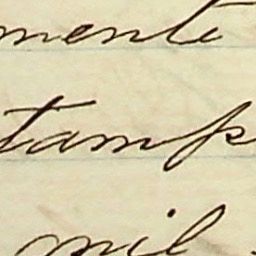 mente
tamp
mil